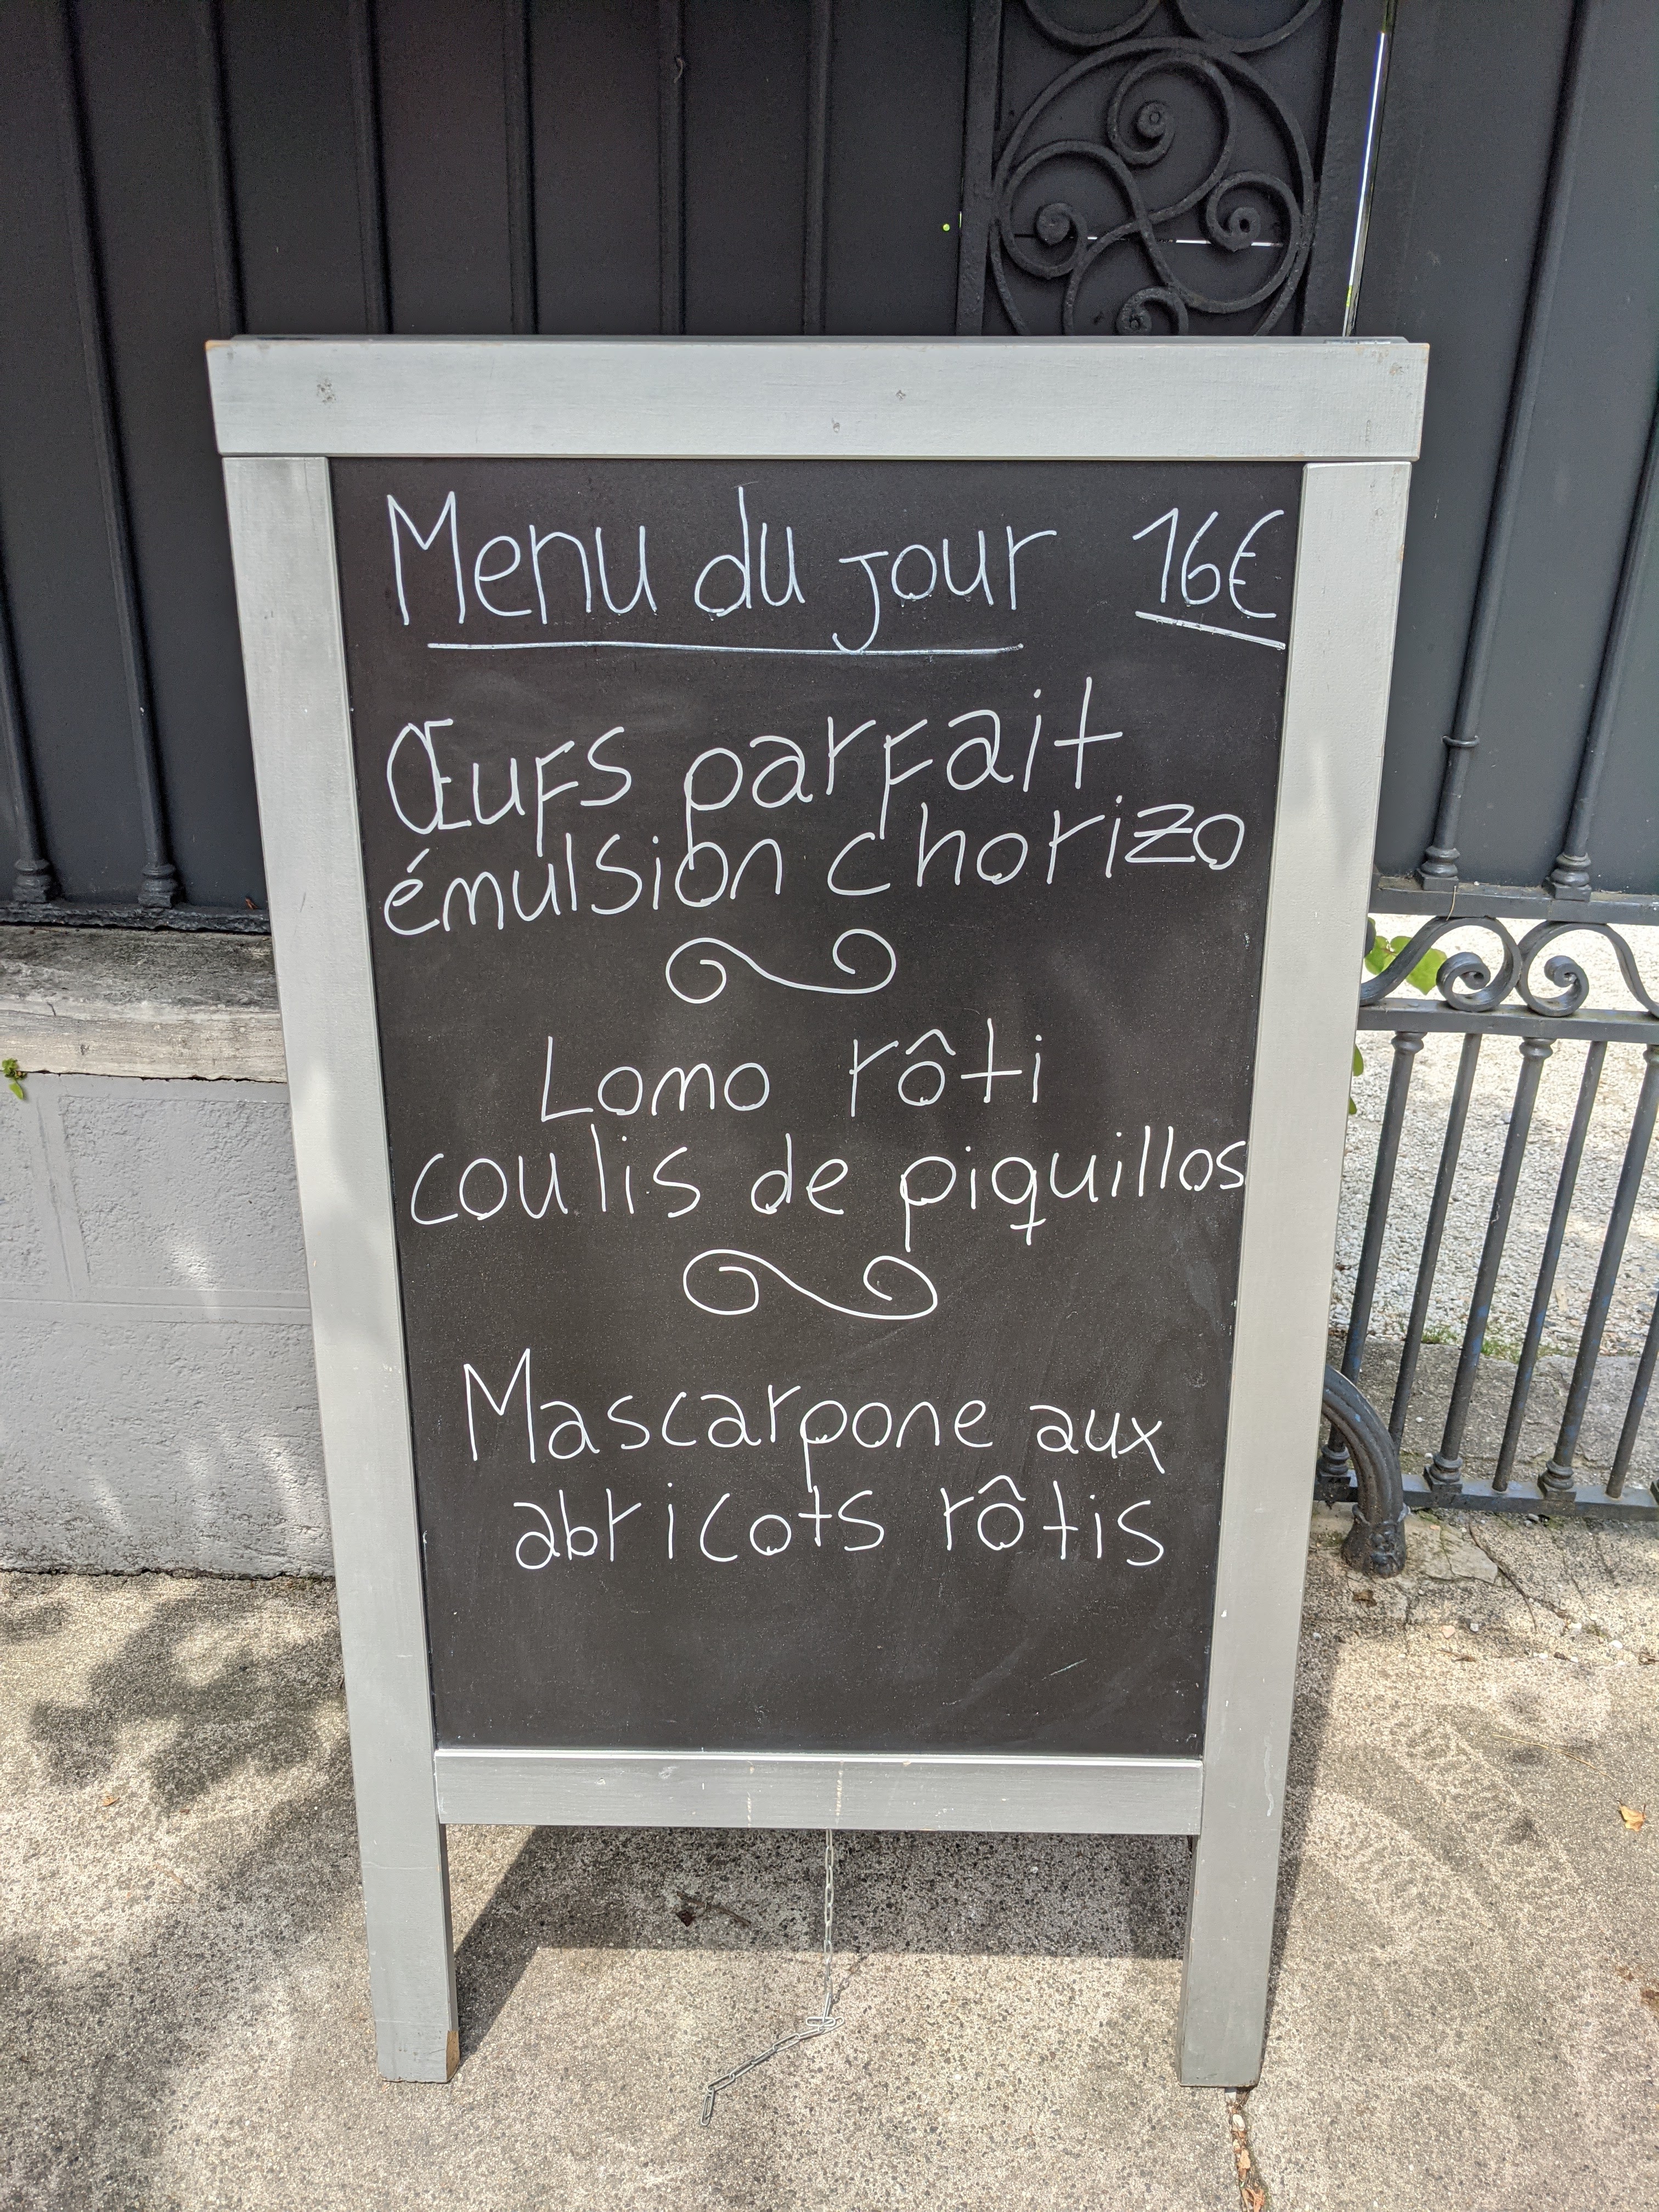 Menu du jour 16€
Œufs parfait
émulsion chorizo
Lomo rôti
coulis de piquillos
Mascarpone aux
abricots rôtis